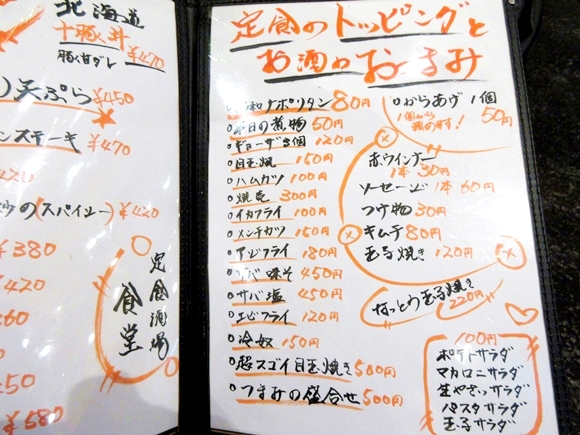 北海道
十豚丼
豚甘ダレ ¥470
天ぷら ¥450
ンステーキ
¥470
のスパイシー ¥420
¥380
¥420
定食酒場
食堂
¥680
定食のトッピングと
お酒のおつまみ
昭和ナポリタン 80円
本日の煮物 50円
ギョーザ3個 120円
目玉焼 100円
ハムカツ 100円
焼売 300円
イカフライ 100円
メンチカツ 150円
アジフライ 180円
サバ味そ 450円
サバ塩 450円
エビフライ 120円
冷奴 150円
超スゴイ目玉焼き 500円
つまみの盛合せ 500円
からあげ 1個
50円
赤ウインナー
1本 30円
ソーセージ 1本 60円
つけ物 30円
キムチ 80円
玉子焼き 120円
なっとう玉子焼き
220円
100円
ポテトサラダ
マカロニサラダ
生やさいサラダ
パスタサラダ
玉子サラダ